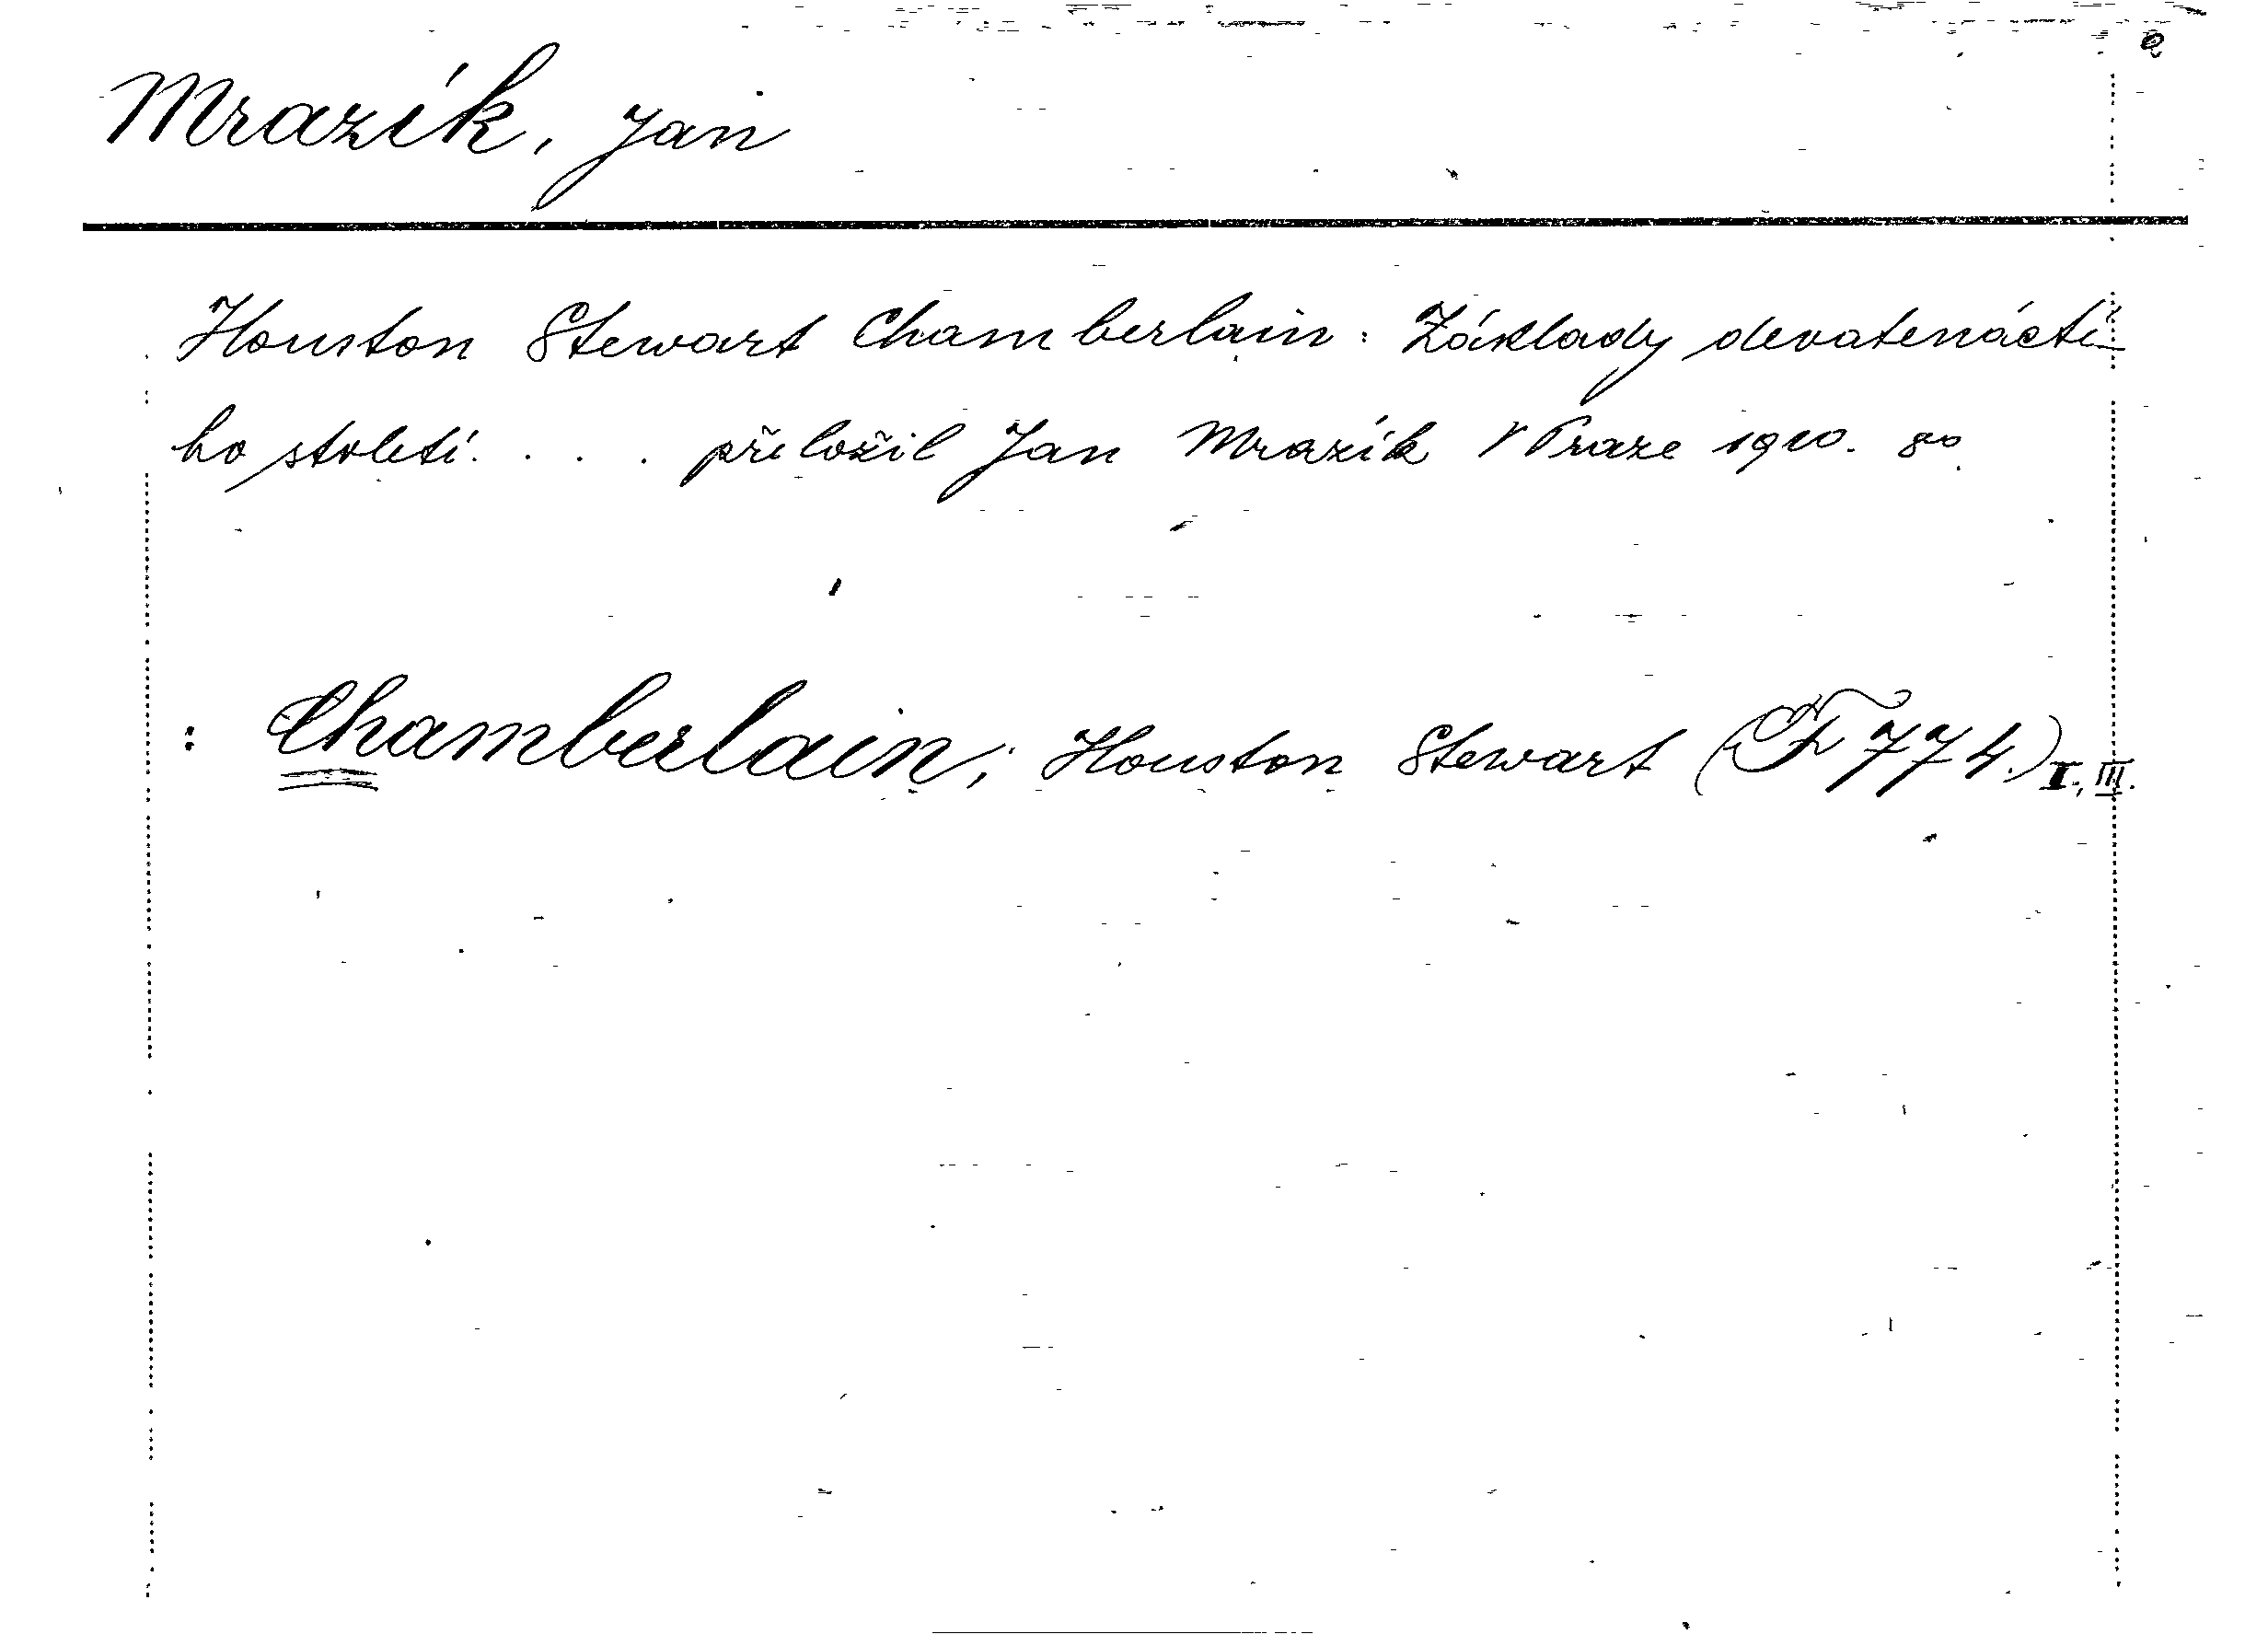 Mrazík, Jan
Houston Stewart Chamberlain: Základy devatenáctí-
ho století. . . . přeložil Jan Mrazík V Praze 1910. 8º.
: Chamberlain, Houston Stewart (F 774.) I., III.